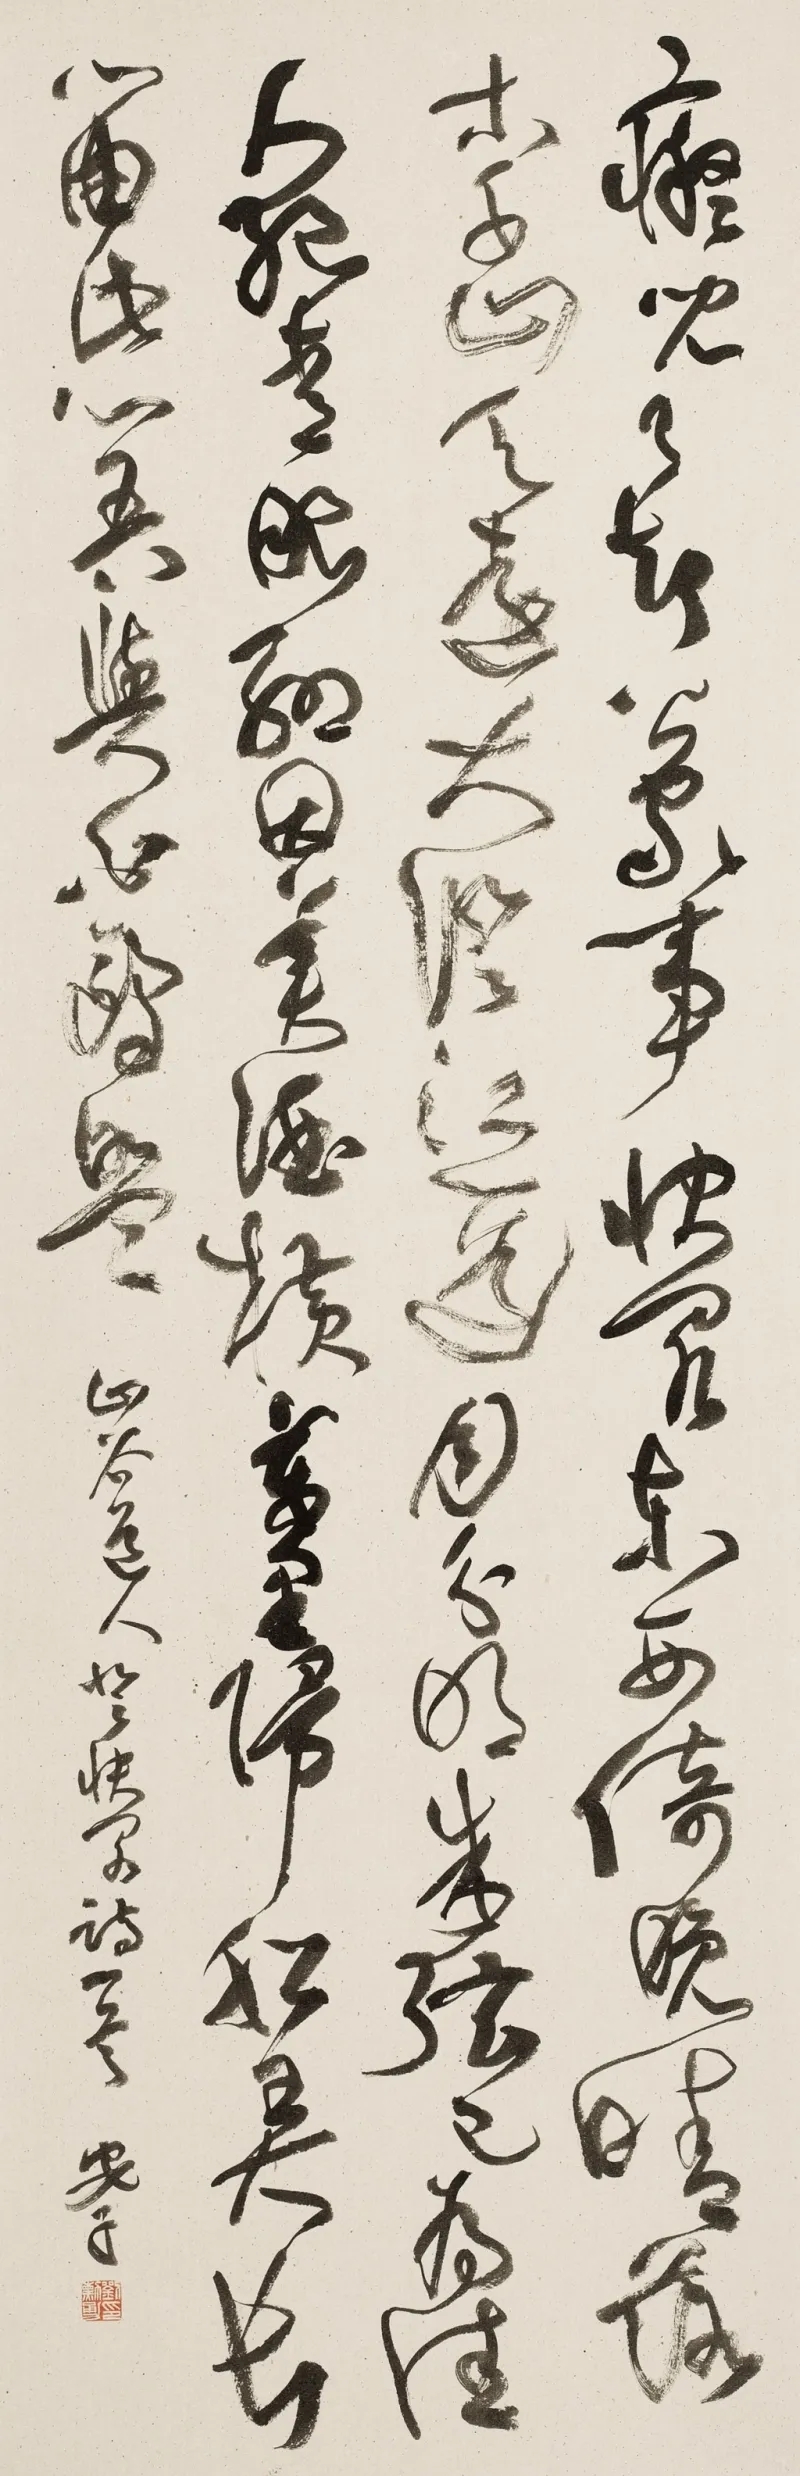 癡兒了却公家事快閣東西倚晚晴落
木千山天遠大澄江一道月分明朱弦已為佳
人絕青眼聊因美酒橫萬里歸船弄長
笛此心吾與白鷗盟 山谷道人登快閣詩一首